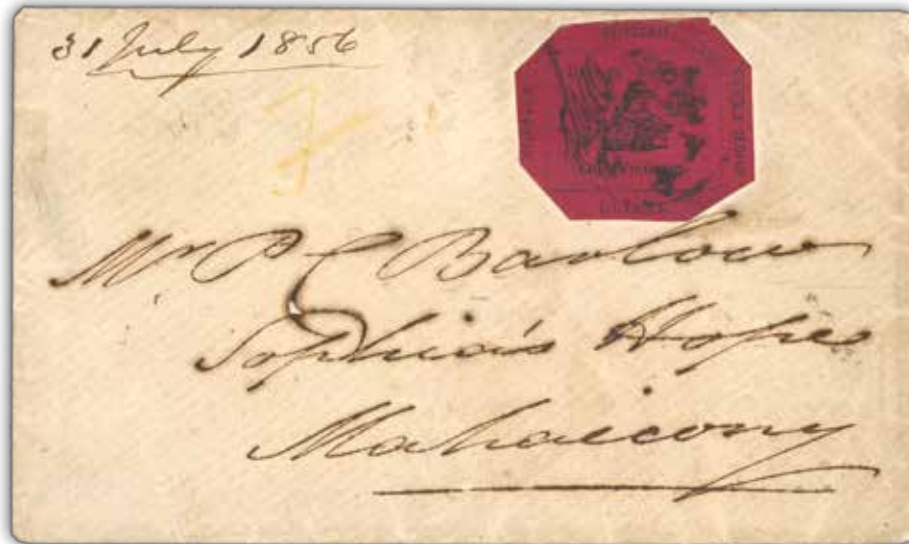 31 July 1856
BRITISH
FOUR CENTS
GUIANA
Mr P C Barlow
Sophia's Hope
Mahaicony